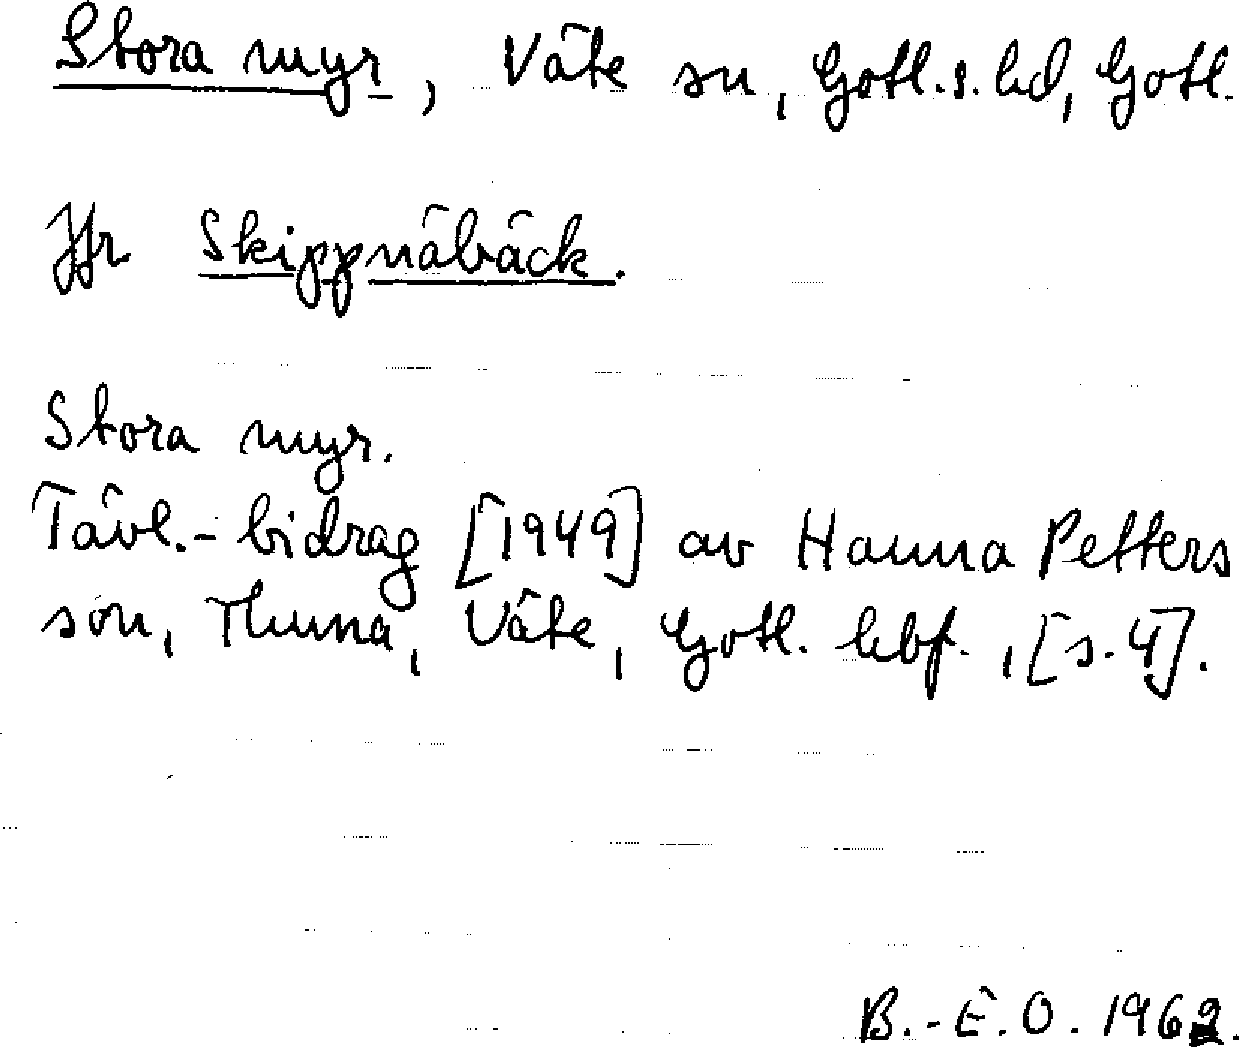 Stora myr, Väte sn, Gotl. s. hd, Gotl.
Jfr Skippnäbäck.
Stora myr.
Tävl.-bidrag [1949] av Hanna Petters
son, Thuna, Väte, Gotl. hbf., [s. 4].
B.-E.O. 1962.